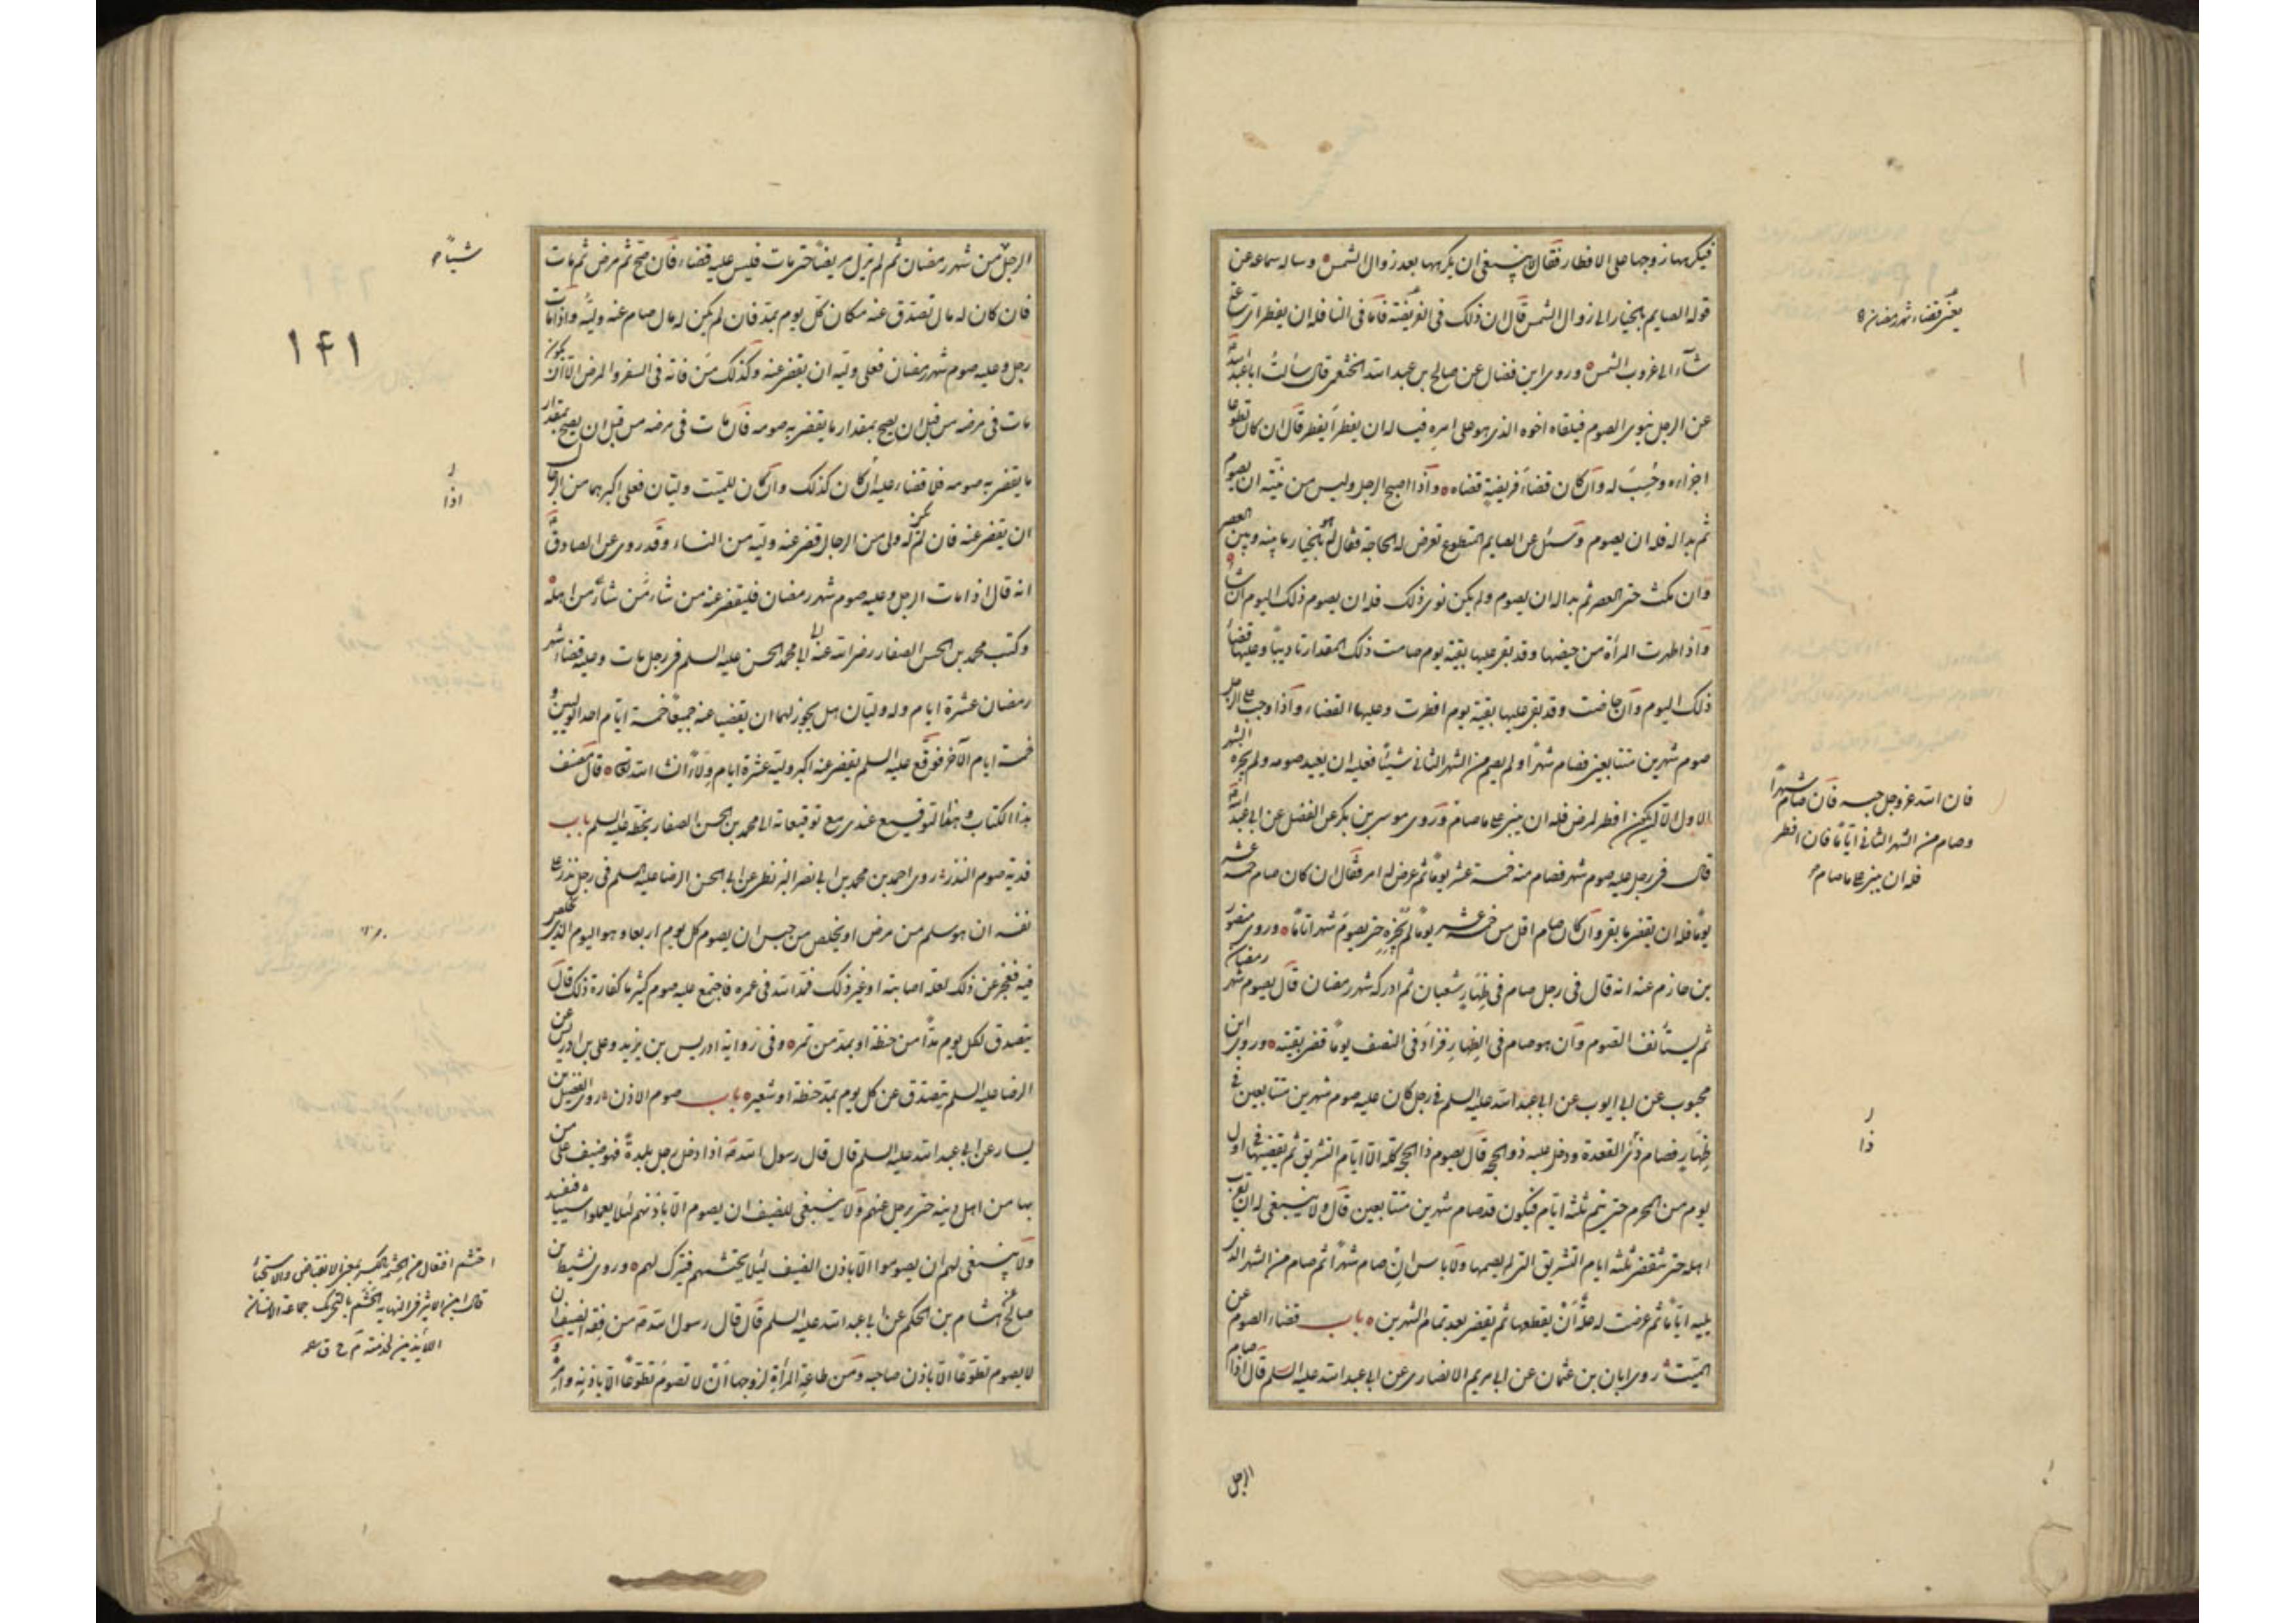 فيكرهها زوجها على الافطار فقال لا ينبغى ان يكرهها بعد زوال الشمس وساله سماعه عن
قوله الصايم بالخيار الى زوال الشمس قال ان ذلك فى الفريضة فاما فى النافلة فله ان يفطر اى ساعة
شآء الى غروب الشمس وروى ابن فضال عن صالح بن عبد الله الخثعمى قال سألت ابا عبد الله
عن الرجل ينوى الصوم فيلقاه اخوه الذى هو على امره فيساله ان يفطر أيفطر قال ان كان تطوعا
اجزاءه وحُسِبَ له وان كان قضاء فريضةٍ قضاه واذا اصبح الرجل وليس من نيته ان يصوم
ثم بدا له فله ان يصوم وسئل عن الصايم المتطوع تعرض له الحاجة فقال هو بالخيار ما بينه وبين العصر
وان مكث حتى العصر ثم بدا له ان يصوم ولم يكن نوى ذلك فله ان يصوم ذلك اليوم ان شاء
واذا طهرت المرأة من حيضها وقد بقى عليها بقية يوم صامت ذلك المقدار تاديبًا وعليها قضاء
ذلك اليوم وان حاضت وقد بقى عليها بقية يوم افطرت وعليها القضاء واذا وجب على الرجل
صوم شهرين متتابعين فصام شهرًا ولم يصم من الشهر الثانى شيئًا فعليه ان يعيد صومه ولم يجزه الشهر
الاول الا ان يكون افطر لمرض فله ان يبنى على ما صام وروى موسى بن بكر عن الفضل عن ابى عبد الله
قال فى رجل عليه صوم شهر فصام منه خمسة عشر يومًا ثم عرض له امر فقال ان كان صام خمسة عشر
يومًا فله ان يقضى ما بقى وان كان صام اقل من خمسة عشر يومًا لم يجزه حتى يصوم شهرًا تامًا وروى منصور
بن حازم عنه انه قال فى رجل صام فى ظهار شعبان ثم ادركه شهر رمضان قال يصوم شهر رمضان
ثم يستأنف الصوم وان هو صام فى الظهار فزاد فى النصف يومًا قضى بقيته وروى ابن
محبوب عن ابى ايوب عن ابى عبد الله عليه السلم فى رجل كان عليه صوم شهرين متتابعين فى
ظهار فصام ذى القعدة ودخل عليه ذو الحجه قال يصوم ذا الحجة كله الا ايام التشريق ثم يقضيها فى اول
يوم من المحرم حتى يتم ثلثه ايام فيكون قد صام شهرين متتابعين قال ولا ينبغى له ان يقرب
اهله حتى يقضى ثلثه ايام التشريق التى لم يصمها ولا باس ان صام شهرًا ثم صام من الشهر الذى
يليه ايامًا ثم عرضت له علة أن يقطعها ثم يقضى بعد تمام الشهرين باب قضاء الصوم عن
الميت روى ابان بن عثمان عن ابى مريم الانصارى عن ابى عبد الله عليه السلم قال اذا صام
الرجل
يعنى قضاء شهر رمضان
فان الله عز وجل حبسه فان صام شهرًا
وصام من الشهر الثانى ايامًا فان افطر
فله ان يبنى على ما صام
ذا
الرجل من شهر رمضان ثم لم يزل مريضًا حتى مات فليس عليه قضاء فان صح ثم مرض ثم مات
فان كان له مال تصدق عنه مكان كل يوم بمد فان لم يكن له مال صام عنه وليه واذا مات
رجل وعليه صوم شهر رمضان فعلى وليه ان يقضى عنه وكذلك من فاته فى السفر والمرض الا ان يكون
مات فى مرضه من قبل ان يصح بمقدار ما يقضى به صومه فان مات فى مرضه من قبل ان يصح بمقدار
ما يقضى به صومه فلا قضاء عليه ان كان كذلك وان كان للميت وليان فعلى اكبرهما من الرجال
ان يقضى عنه فان لم يكن له ولى من الرجال قضى عنه وليه من النساء وقد روى عن الصادق
انه قال اذا مات الرجل وعليه صوم شهر رمضان فليقض عنه من شاء من اهله
وكتب محمد بن الحسن الصفار رضى الله عنه الى ابى محمد الحسن عليه السلم فى رجل مات وعليه قضاء شهر
رمضان عشرة ايام وله وليان هل يجوز لهما ان يقضيا عنه جميعًا خمسة ايام احد الوليين و
خمسة ايام الآخر فوقع عليه السلم يقضى عنه اكبر وليه عشرة ايام ولاءً ان شاء الله قال مصنف
هذا الكتاب وهذا التوقيع عندى مع توقيعاته الى محمد بن الحسن الصفار بخطه عليه السلم باب
فدية صوم النذر روى احمد بن محمد بن ابى نصر البزنطى عن ابى الحسن الرضا عليه السلم فى رجل نذر على
نفسه ان هو سلم من مرض او تخلص من حبس ان يصوم كل يوم اربعاء وهو اليوم الذى تخلص
فيه فعجز عن ذلك لعلة اصابته او غير ذلك فمد الله فى عمره فاجتمع عليه صوم كثير ما كفارة ذلك قال
يتصدق لكل يوم مدًا من حنطة او بمد من تمر وفى رواية ادريس بن يزيد وعلى بن ادريس عن
الرضا عليه السلم يتصدق عن كل يوم بمد حنطة او شعير باب صوم الاذن روى الفضيل بن
يسار عن ابى عبد الله عليه السلم قال قال رسول الله اذا دخل رجل بلدةً فهو ضيف على من
بها من اهل دينه حتى يرحل عنهم ولا ينبغى للضيف ان يصوم الا باذنهم لئلا يعملوا شيئا فيفسد
ولا ينبغى لهم ان يصوموا الا باذن الضيف ليلا يحتشمهم فيترك لهم وروى نشيط بن
صالح عن هشام بن الحكم عن ابى عبد الله عليه السلم قال قال رسول الله من فقه الضيف ان
لا يصوم تطوعًا الا باذن صاحبه ومن طاعة المرأة لزوجها أن لا تصوم تطوعًا الا باذنه وامره
شيئا
١٤١
اذا
احتشم افتعال من الحشمة بالكسر بمعنى الانقباض والاستحياء
قال ابن الاثير فى النهايه الحشم بالتحريك جماعة الانسان
اللائذين لخدمته